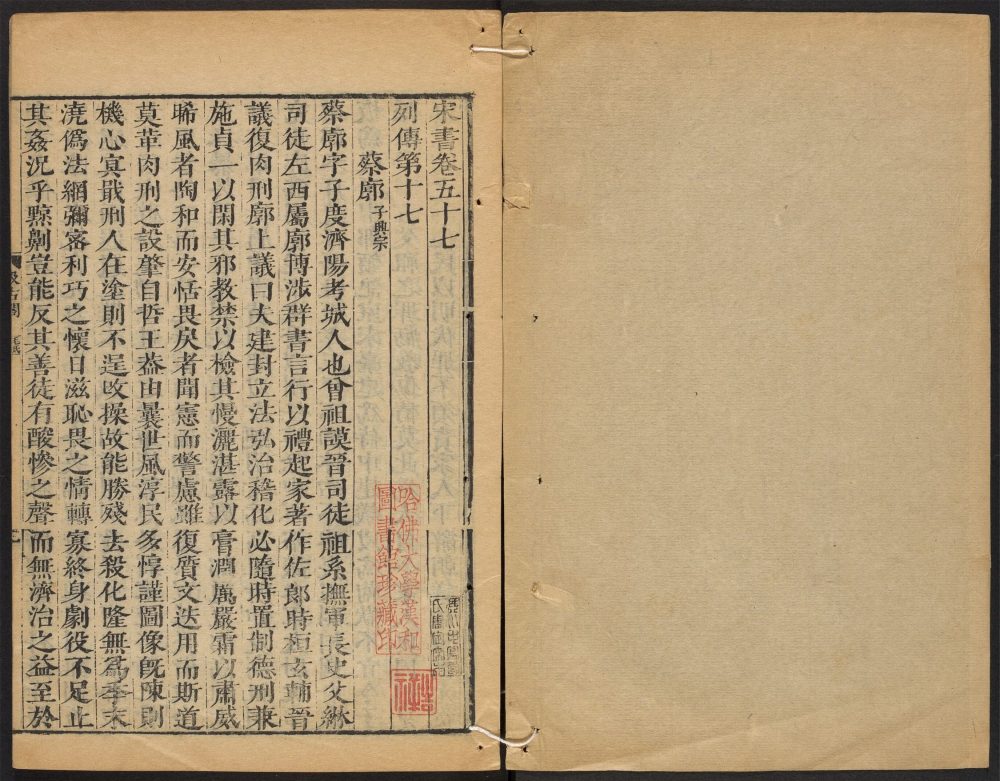 宋書卷五十七
列傳第十七
蔡廓子興宗
蔡廓字子度濟陽考城人也曾祖謨晉司徒祖系撫軍長史父綝
司徒左西屬廓博涉群書言行以禮起家著作佐郎時桓玄輔晉
議復肉刑廓上議曰夫建封立法弘治稽化必隨時置制德刑兼
施貞一以閑其邪教禁以檢其慢灑湛露以膏潤厲嚴霜以肅威
晞風者陶和而安恬畏戾者聞憲而警慮雖復質文迭用而斯道
莫革肉刑之設肇自哲王葢由曩世風淳民多惇謹圖像旣陳則
機心寘戢刑人在塗則不逞改操故能勝殘去殺化隆無爲季末
澆僞法網彌密利巧之懷日滋恥畏之情轉寡終身劇役不足止
其姦況乎黥劓豈能反其善徒有酸慘之聲而無濟治之益至於
哈佛大學漢和
圖書館珍藏印